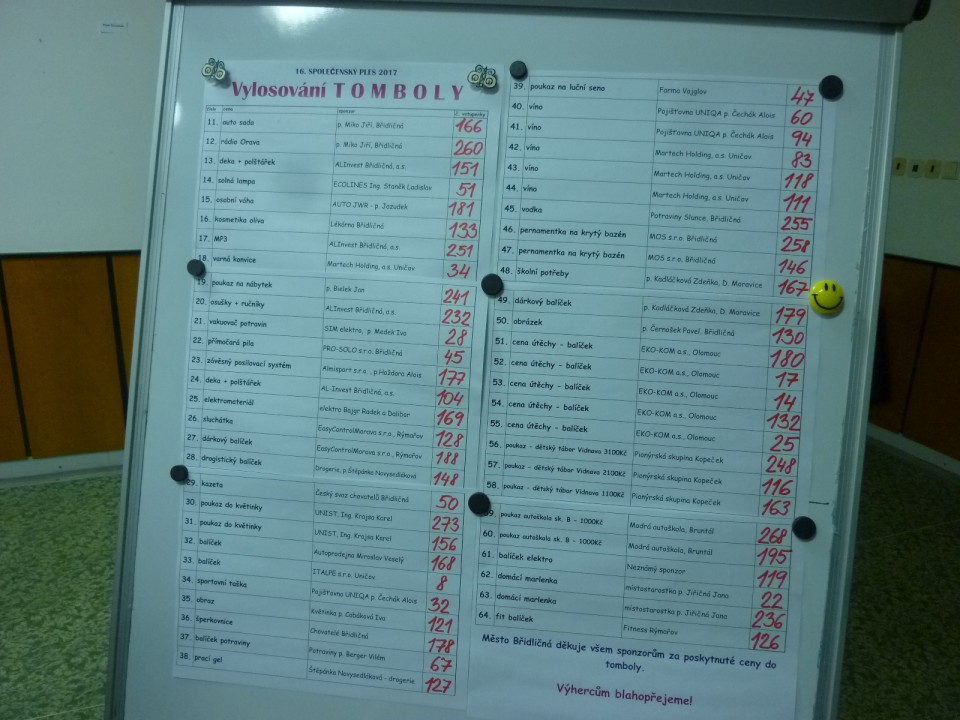 16. SPOLEČENSKÝ PLES 2017
Vylosování TOMBOLY
číslo cena sponzor č. vstupenky
11. auto sada p. Mika Jiří, Břidličná 166
12. rádio Orava p. Mika Jiří, Břidličná 260
13. deka + polštářek ALInvest Břidličná, a.s. 151
14. solná lampa ECOLINES Ing. Staněk Ladislav 51
15. osobní váha AUTO JWR - p. Jazudek 181
16. kosmetika oliva Lékárna Břidličná 133
17. MP3 ALInvest Břidličná, a.s. 251
18. varná konvice Martech Holding, a.s. Uničov 34
19. poukaz na nábytek p. Bielek Jan 241
20. osušky + ručníky ALInvest Břidličná, a.s. 232
21. vakuovač potravin SIM elektro, p. Medek Ivo 28
22. přímočará pila PRO-SOLO s.r.o. Břidličná 45
23. závěsný posilovací systém Almisport s.r.o., p.Haďora Alois 177
24. deka + polštářek AL-Invest Břidličná, a.s. 104
25. elektromateriál elektro Bajgr Radek a Dalibor 169
26. sluchátka EasyControlMorava s.r.o., Rýmařov 128
27. dárkový balíček EasyControlMorava s.r.o., Rýmařov 188
28. drogistický balíček Drogerie, p.Štěpánka Novysedláková 148
29. kazeta Český svaz chovatelů Břidličná 50
30. poukaz do květinky UNIST, Ing. Krajsa Karel 273
31. poukaz do květinky UNIST, Ing. Krajsa Karel 156
32. balíček Autoprodejna Miroslav Veselý 168
33. balíček ITALPE s.r.o. Uničov 8
34. sportovní taška Pojišťovna UNIQA p. Čechák Alois 32
35. obraz Květinka p. Cabáková Iva 121
36. šperkovnice Chovatelé Břidličná 178
37. balíček potraviny Potraviny p. Berger Vilém 67
38. prací gel Štěpánka Novysedláková - drogerie 127
39. poukaz na luční seno Farma Vajglov 47
40. víno Pojišťovna UNIQA p. Čechák Alois 60
41. víno Pojišťovna UNIQA p. Čechák Alois 94
42. víno Martech Holding, a.s. Uničov 83
43. víno Martech Holding, a.s. Uničov 118
44. víno Martech Holding, a.s. Uničov 111
45. vodka Potraviny Slunce, Břidličná 255
46. pernamentka na krytý bazén MOS s.r.o. Břidličná 258
47. pernamentka na krytý bazén MOS s.r.o. Břidličná 146
48. školní potřeby p. Kadláčková Zdeňka, D. Moravice 167
49. dárkový balíček p. Kadláčková Zdeňka, D. Moravice 179
50. obrázek p. Černošek Pavel, Břidličná 130
51. cena útěchy - balíček EKO-KOM a.s., Olomouc 180
52. cena útěchy - balíček EKO-KOM a.s., Olomouc 17
53. cena útěchy - balíček EKO-KOM a.s., Olomouc 14
54. cena útěchy - balíček EKO-KOM a.s., Olomouc 132
55. cena útěchy - balíček EKO-KOM a.s., Olomouc 25
56. poukaz - dětský tábor Vidnava 3100Kč Pionýrská skupina Kopeček 248
57. poukaz - dětský tábor Vidnava 2100Kč Pionýrská skupina Kopeček 116
58. poukaz - dětský tábor Vidnava 1100Kč Pionýrská skupina Kopeček 163
59. poukaz autoškola sk. B - 1000Kč Modrá autoškola, Bruntál 268
60. poukaz autoškola sk. B - 1000Kč Modrá autoškola, Bruntál 195
61. balíček elektro Neznámý sponzor 119
62. domácí marlenka místostarostka p. Jiřičná Jana 22
63. domácí marlenka místostarostka p. Jiřičná Jana 236
64. fit balíček Fitness Rýmařov 126
Město Břidličná děkuje všem sponzorům za poskytnuté ceny do
tomboly.
Výhercům blahopřejeme!